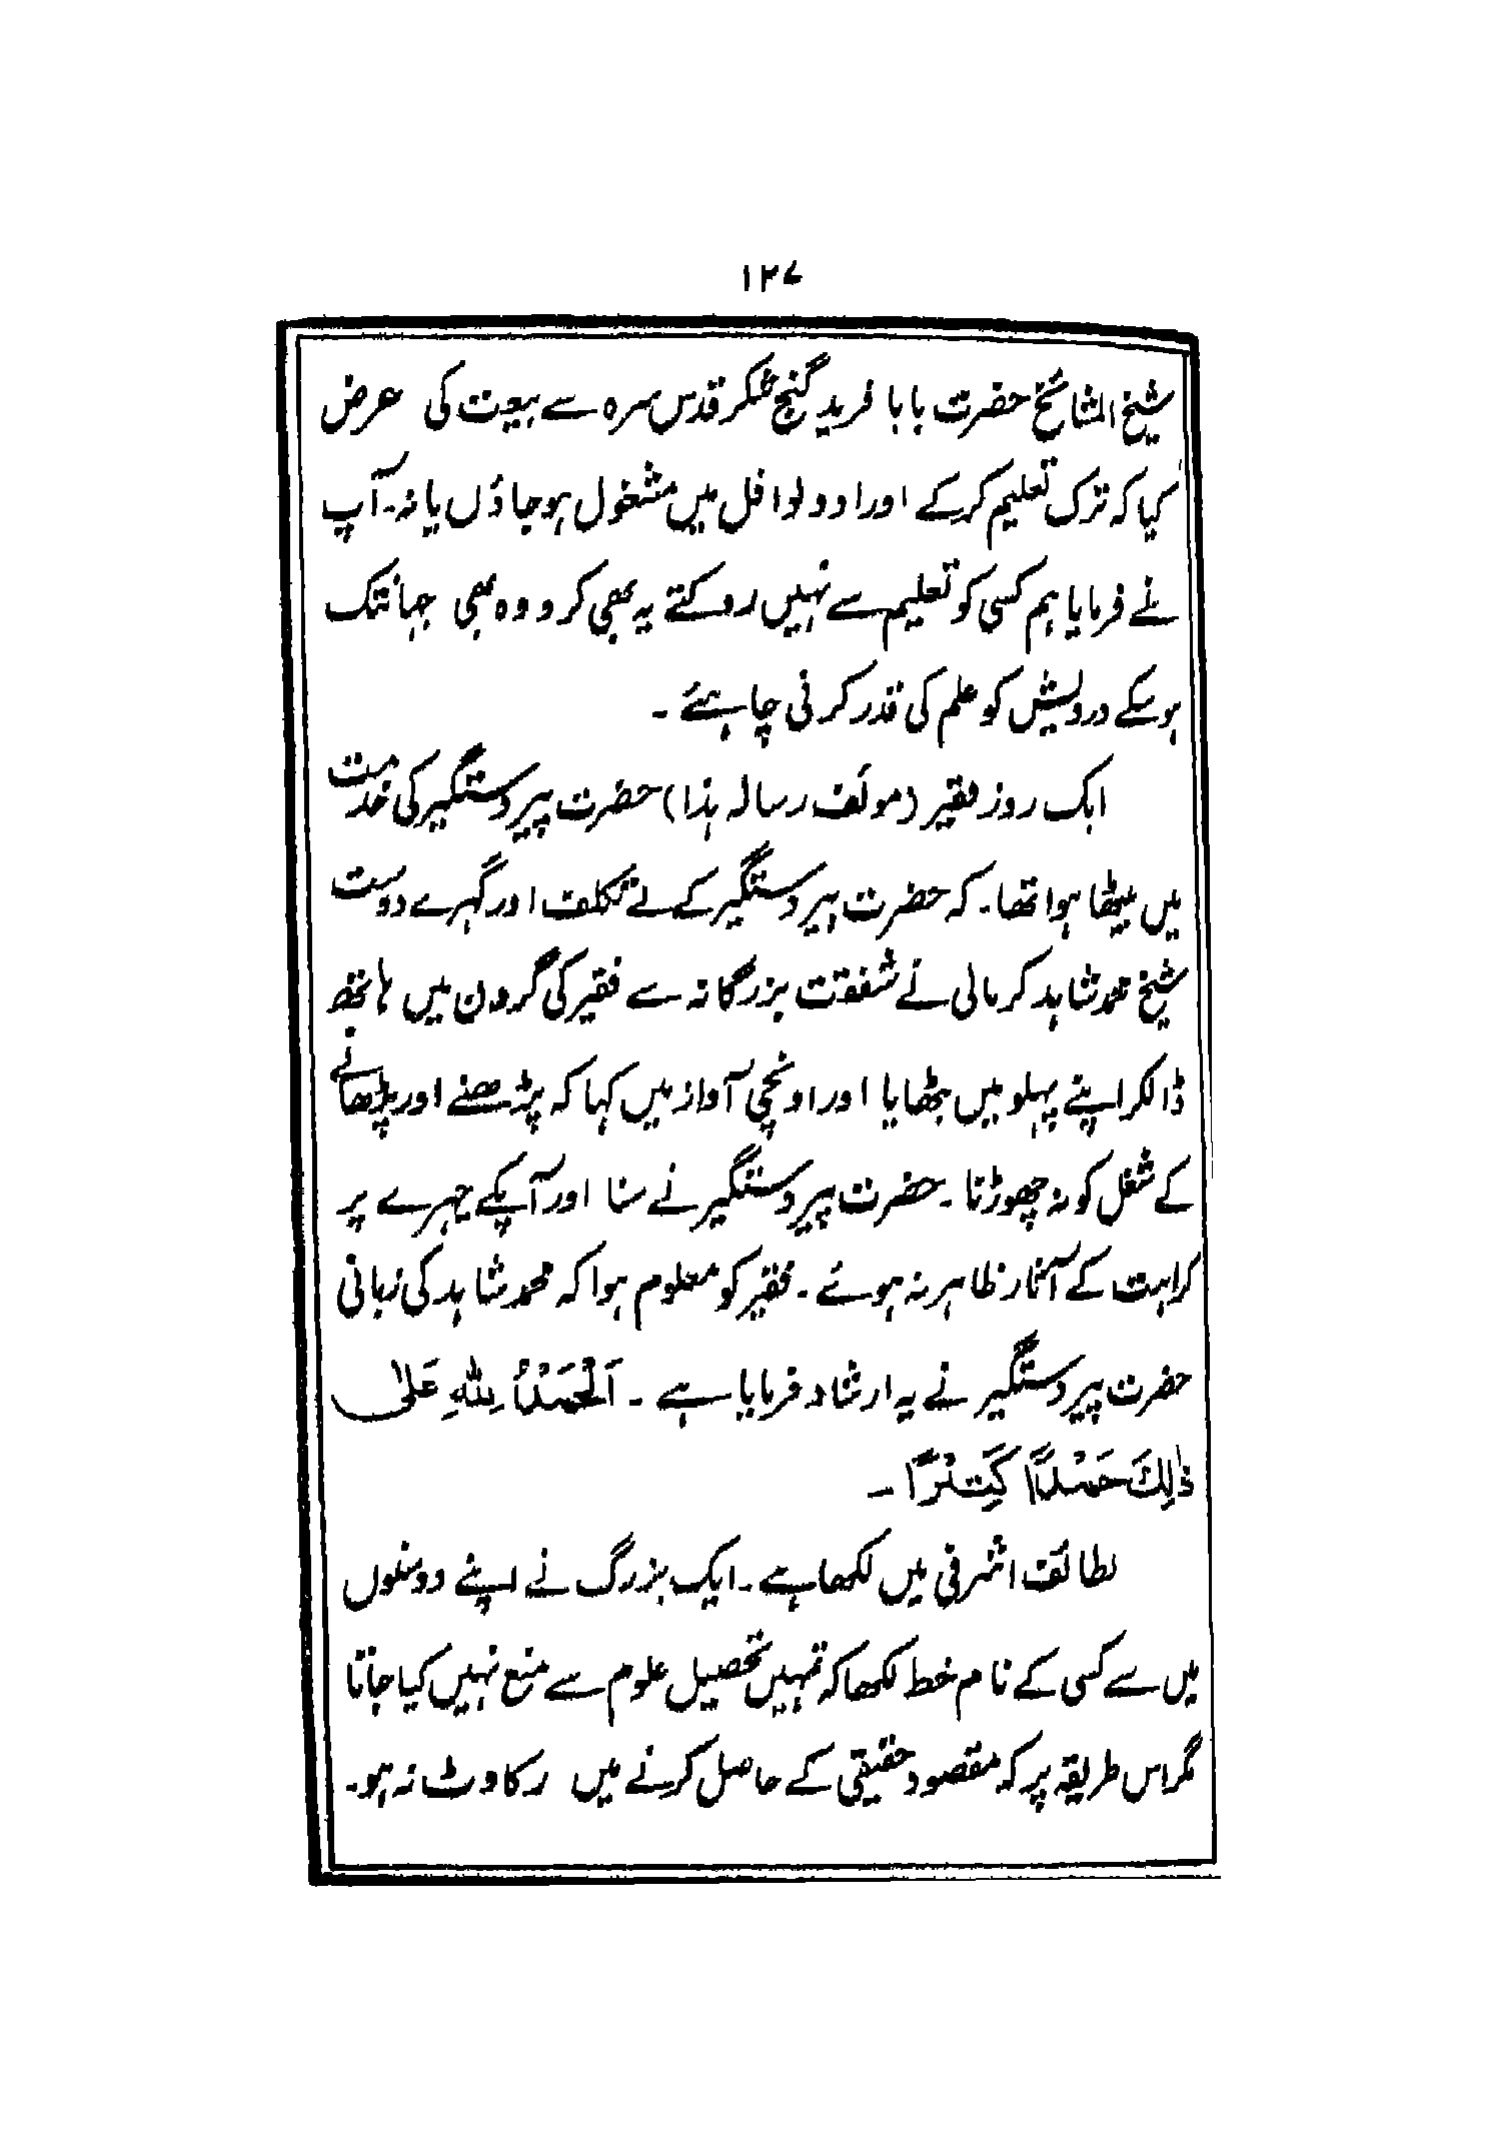 ۱۲۷
شیخ المشائخ حضرت بابا فرید گنج شکر قدس سرہ سے بیعت کی عرض
کیا کہ ترک تعلیم کرکے اوراد و نوافل میں مشغول ہو جاؤں یا نہ۔ آپ
نے فرمایا ہم کسی کو تعلیم سے نہیں روکتے یہ بھی کرو وہ بھی جہانتک
ہوسکے درویش کو علم کی قدر کرنی چاہئے ۔
ایک روز فقیر (مولف رسالہ ہذا) حضرت پیر دستگیر کی خدمت
میں بیٹھا ہوا تھا۔ کہ حضرت پیر دستگیر کے بے تکلف اور گہرے دوست
شیخ محمد شاہد کرمالی نے شفقت بزرگانہ سے فقیر کی گردن میں ہاتھ
ڈالکر اپنے پہلو میں بٹھایا اور اونچی آواز میں کہا کہ پڑھنے اور پڑھانے
کے شغل کو نہ چھوڑنا ۔ حضرت پیر دستگیر نے سنا اور آپکے چہرے پر
کراہت کے آثار ظاہر نہ ہوئے ۔ فقیر کو معلوم ہوا کہ محمد شاہد کی زبانی
حضرت پیر دستگیر نے یہ ارشاد فرمایا ہے ۔ اَلْحَمْدُ لِلّٰہِ عَلٰی
ذٰلِكَ حَمْدًا كَثِیْرًا ۔
لطائف اشرفی میں لکھا ہے ۔ ایک بزرگ نے اپنے دوستوں
میں سے کسی کے نام خط لکھا کہ تمہیں تحصیل علوم سے منع نہیں کیا جاتا
مگر اس طریقہ پر کہ مقصود حقیقی کے حاصل کرنے میں رکاوٹ نہ ہو۔